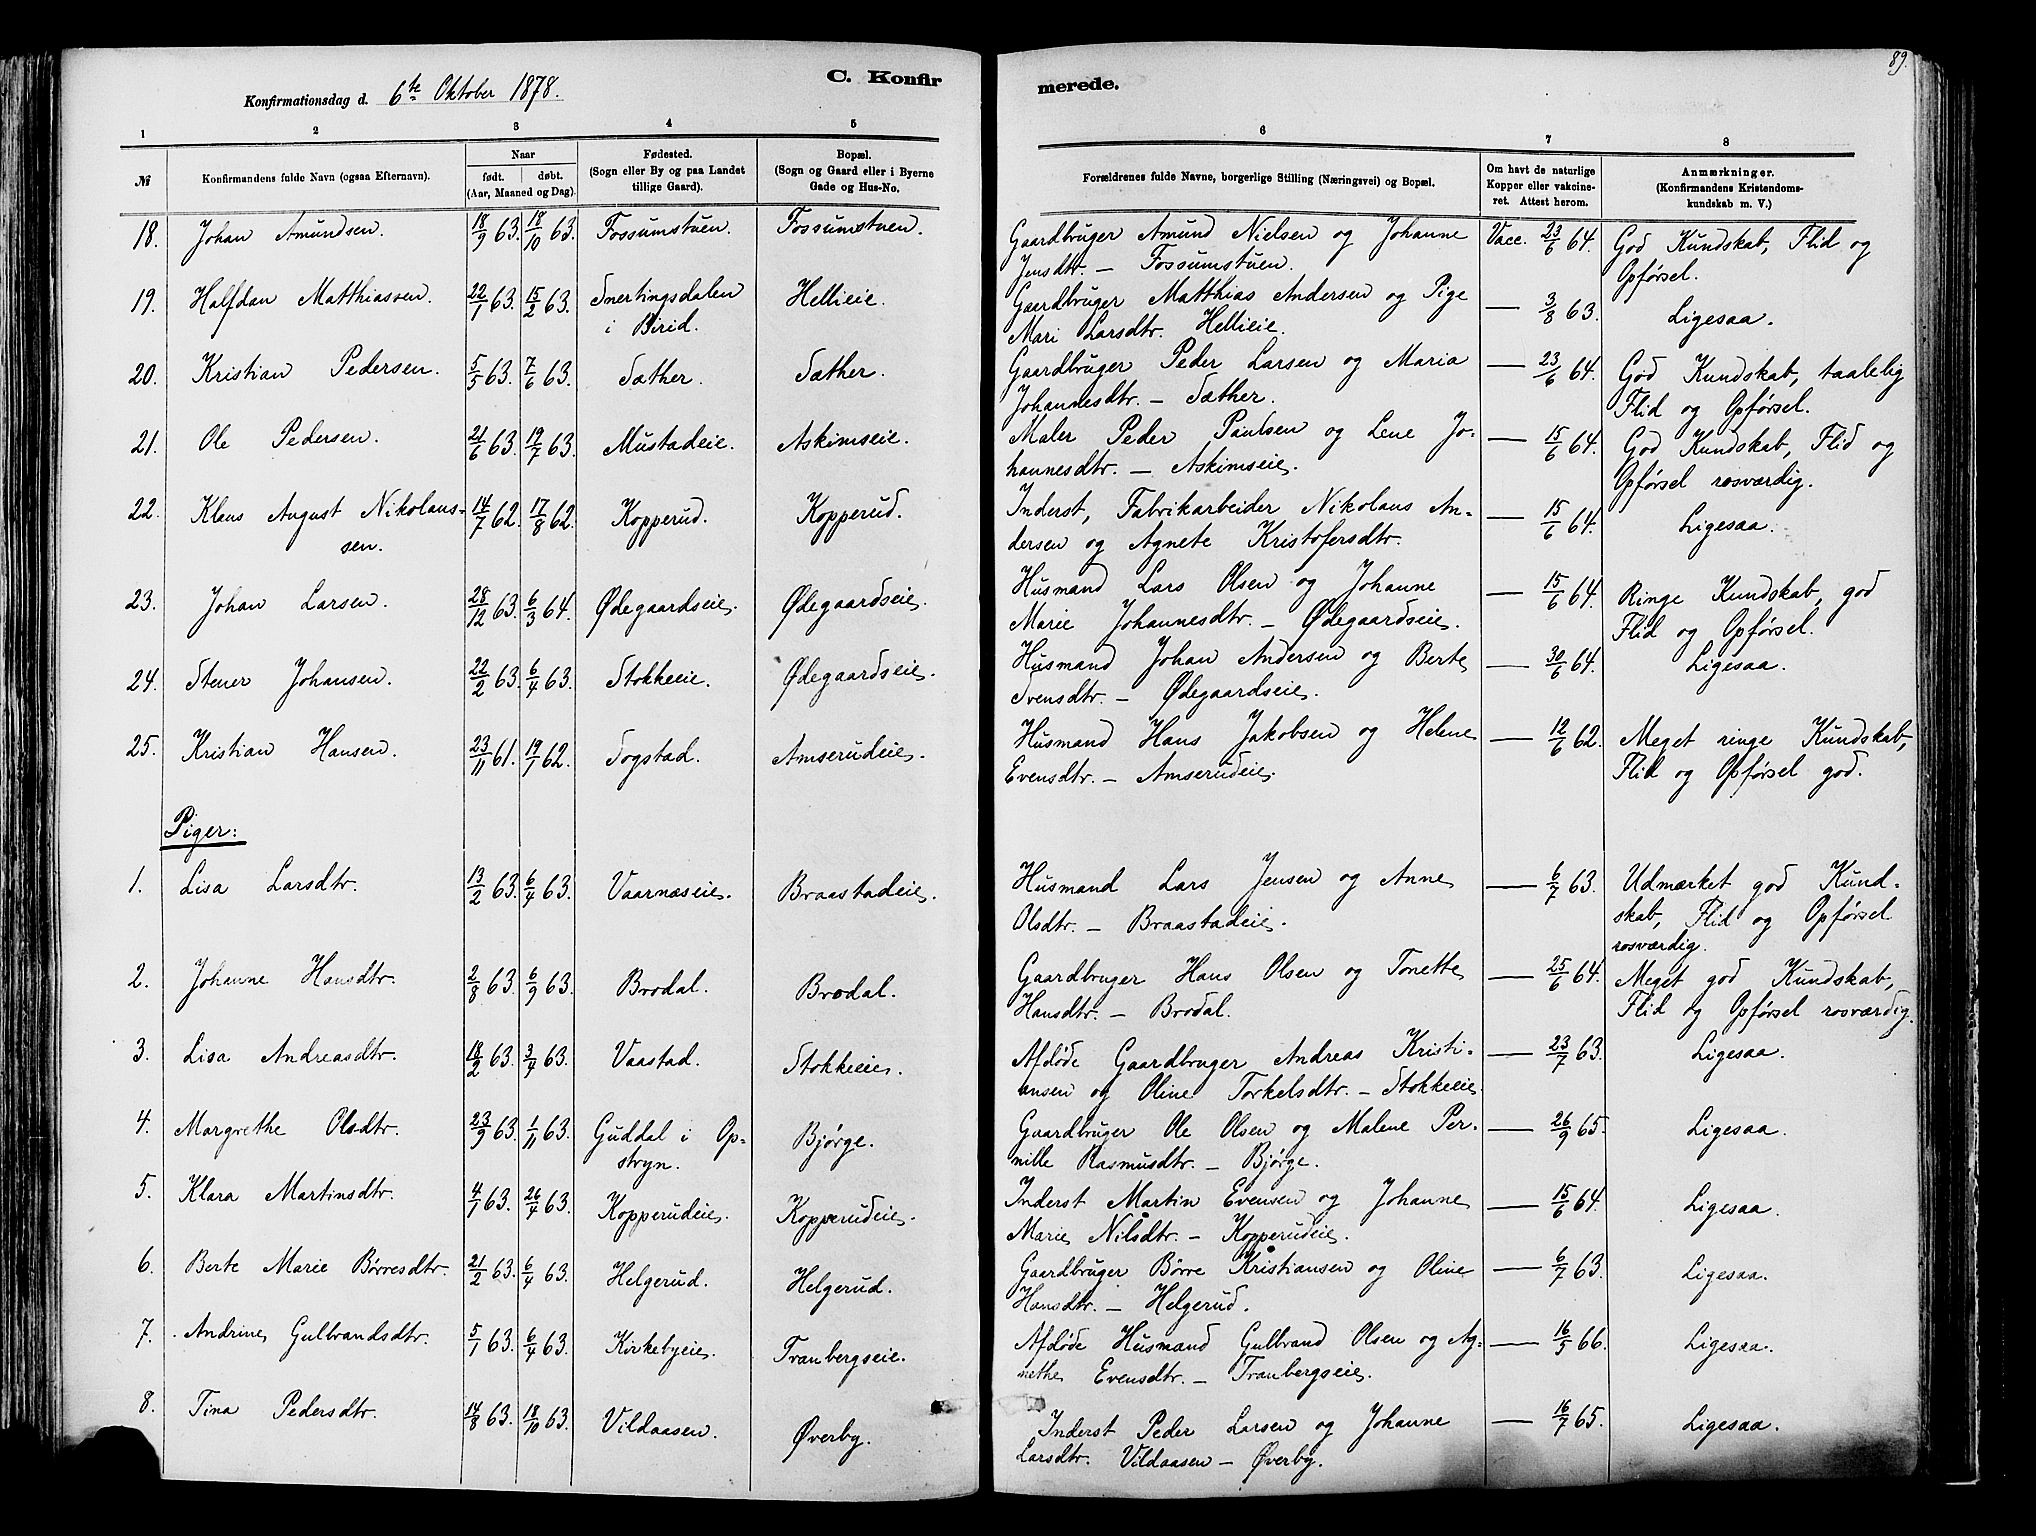 89.
Konfirmationsdag d. 6te Oktober 1878.
C. Konfirmerede.
1 2 3 4 5 6 7 8
№ Konfirmandens fulde Navn (ogsaa Efternavn). Naar født. døbt. (Aar, Maaned og Dag). Fødested. (Sogn eller By og paa Landet tillige Gaard). Bopæl. (Sogn og Gaard eller i Byerne Gade og Hus-No. Forældrenes fulde Navne, borgerlige Stilling (Næringsvei) og Bopæl. Om havt de naturlige Kopper eller vakcineret. Attest herom. Anmærkninger. (Konfirmandens Kristendomskundskab m. V.)
18. Johan Amundsen. 18/9 63. 18/10 63. Fossumstuen. Fossumstuen. Gaardbruger Amund Nielsen og Johanne Vacc. 23/6 64. God Kundskab, Flid og
Jensdtr. — Fossumstuen. Opførsel.
19. Halfdan Matthiassen. 22/1 63. 15/2 63. Snertingsdalen Hellieie. Gaardbruger Matthias Andersen og Pige — 3/8 63. Ligesaa.
i Birid. Mari Larsdtr. Hellieie.
20. Kristian Pedersen. 5/5 63. 7/6 63. Sæther. Sæther. Gaardbruger Peder Larsen og Maria — 23/6 64. God Kundskab, taalelig
Johannesdtr. — Sæther. Flid og Opførsel.
21. Ole Pedersen. 21/6 63. 19/7 63. Mustadeie. Askimseie. Maler Peder Paulsen og Lene Jo- — 15/6 64. God Kundskab, Flid og
hannesdtr. — Askimseie. Opførsel rosværdig.
22. Klaus August Nikolaus- 14/7 62. 17/8 62. Kopperud. Kopperud. Inderst, Fabrikarbeider Nikolaus An- — 15/6 64. Ligesaa.
sen. dersen og Agnete Kristofersdtr.
23. Johan Larsen. 28/12 63. 6/3 64. Ødegaardseie. Ødegaardseie. Husmand Lars Olsen og Johanne — 15/6 64. Ringe Kundskab, god
Marie Johannesdtr. — Ødegaardseie. Flid og Opførsel.
24. Stener Johansen. 22/2 63. 6/4 63. Stokkeie. Ødegaardseie. Husmand Johan Andersen og Berte — 30/6 64. Ligesaa.
Svensdtr. — Ødegaardseie.
25. Kristian Hansen. 23/11 61. 19/1 62. Sogstad. Amserudeie. Husmand Hans Jakobsen og Helene — 12/6 62. Meget ringe Kundskab,
Evensdtr. — Amserudeie. Flid og Opførsel god.
Piger:
1. Lisa Larsdtr. 13/2 63. 6/4 63. Vaarnæseie. Braastadeie. Husmand Lars Jensen og Anne — 6/7 63. Udmærket god Kund-
Olsdtr. — Braastadeie. skab, Flid og Opførsel
rosværdig.
2. Johanne Hansdtr. 2/8 63. 6/9 63. Brodal. Brodal. Gaardbruger Hans Olsen og Tonette — 25/6 64. Meget god Kundskab,
Hansdtr. — Brodal. Flid og Opførsel rosværdig.
3. Lisa Andreasdtr. 18/2 63. 3/4 63. Vaastad. Stokkeie. Afdøde Gaardbruger Andreas Kristi- — 23/7 63. Ligesaa.
ansen og Oline Torkelsdtr. — Stokkeie
4. Margrethe Olsdtr. 23/9 63. 1/11 63. Guddal i Op- Bjørge. Gaardbruger Ole Olsen og Malene Per- — 26/9 65. Ligesaa.
stryn. nille Rasmusdtr. — Bjørge.
5. Klara Martinsdtr. 4/1 63. 26/4 63. Kopperudeie. Kopperudeie. Inderst Martin Evensen og Johanne — 15/6 64. Ligesaa.
Marie Nilsdtr. — Kopperudeie.
6. Berte Marie Børresdtr. 21/2 63. 6/4 63. Helgerud. Helgerud. Gaardbruger Børre Kristiansen og Oline — 6/7 63. Ligesaa.
Hansdtr. — Helgerud.
7. Andrine Gulbrandsdtr. 5/1 63. 6/4 63. Kirkebyeie. Tranbergseie. Afdøde Husmand Gulbrand Olsen og Ag- — 16/5 66. Ligesaa.
nethe Evensdtr. — Tranbergseie.
8. Tina Pedersdtr. 14/8 63. 18/10 63. Vildaasen. Øverby. Inderst Peder Larsen og Johanne — 16/7 65. Ligesaa.
Larsdtr. Vildaasen — Øverby.